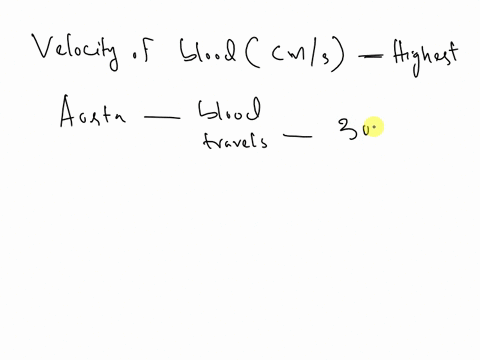 Velocity of blood (cm/s) — Highest
Aorta — blood travels — 30